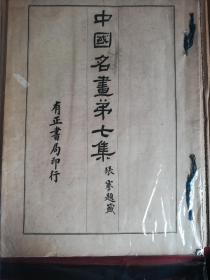 中國名畫第七集
張謇題籤
有正書局印行